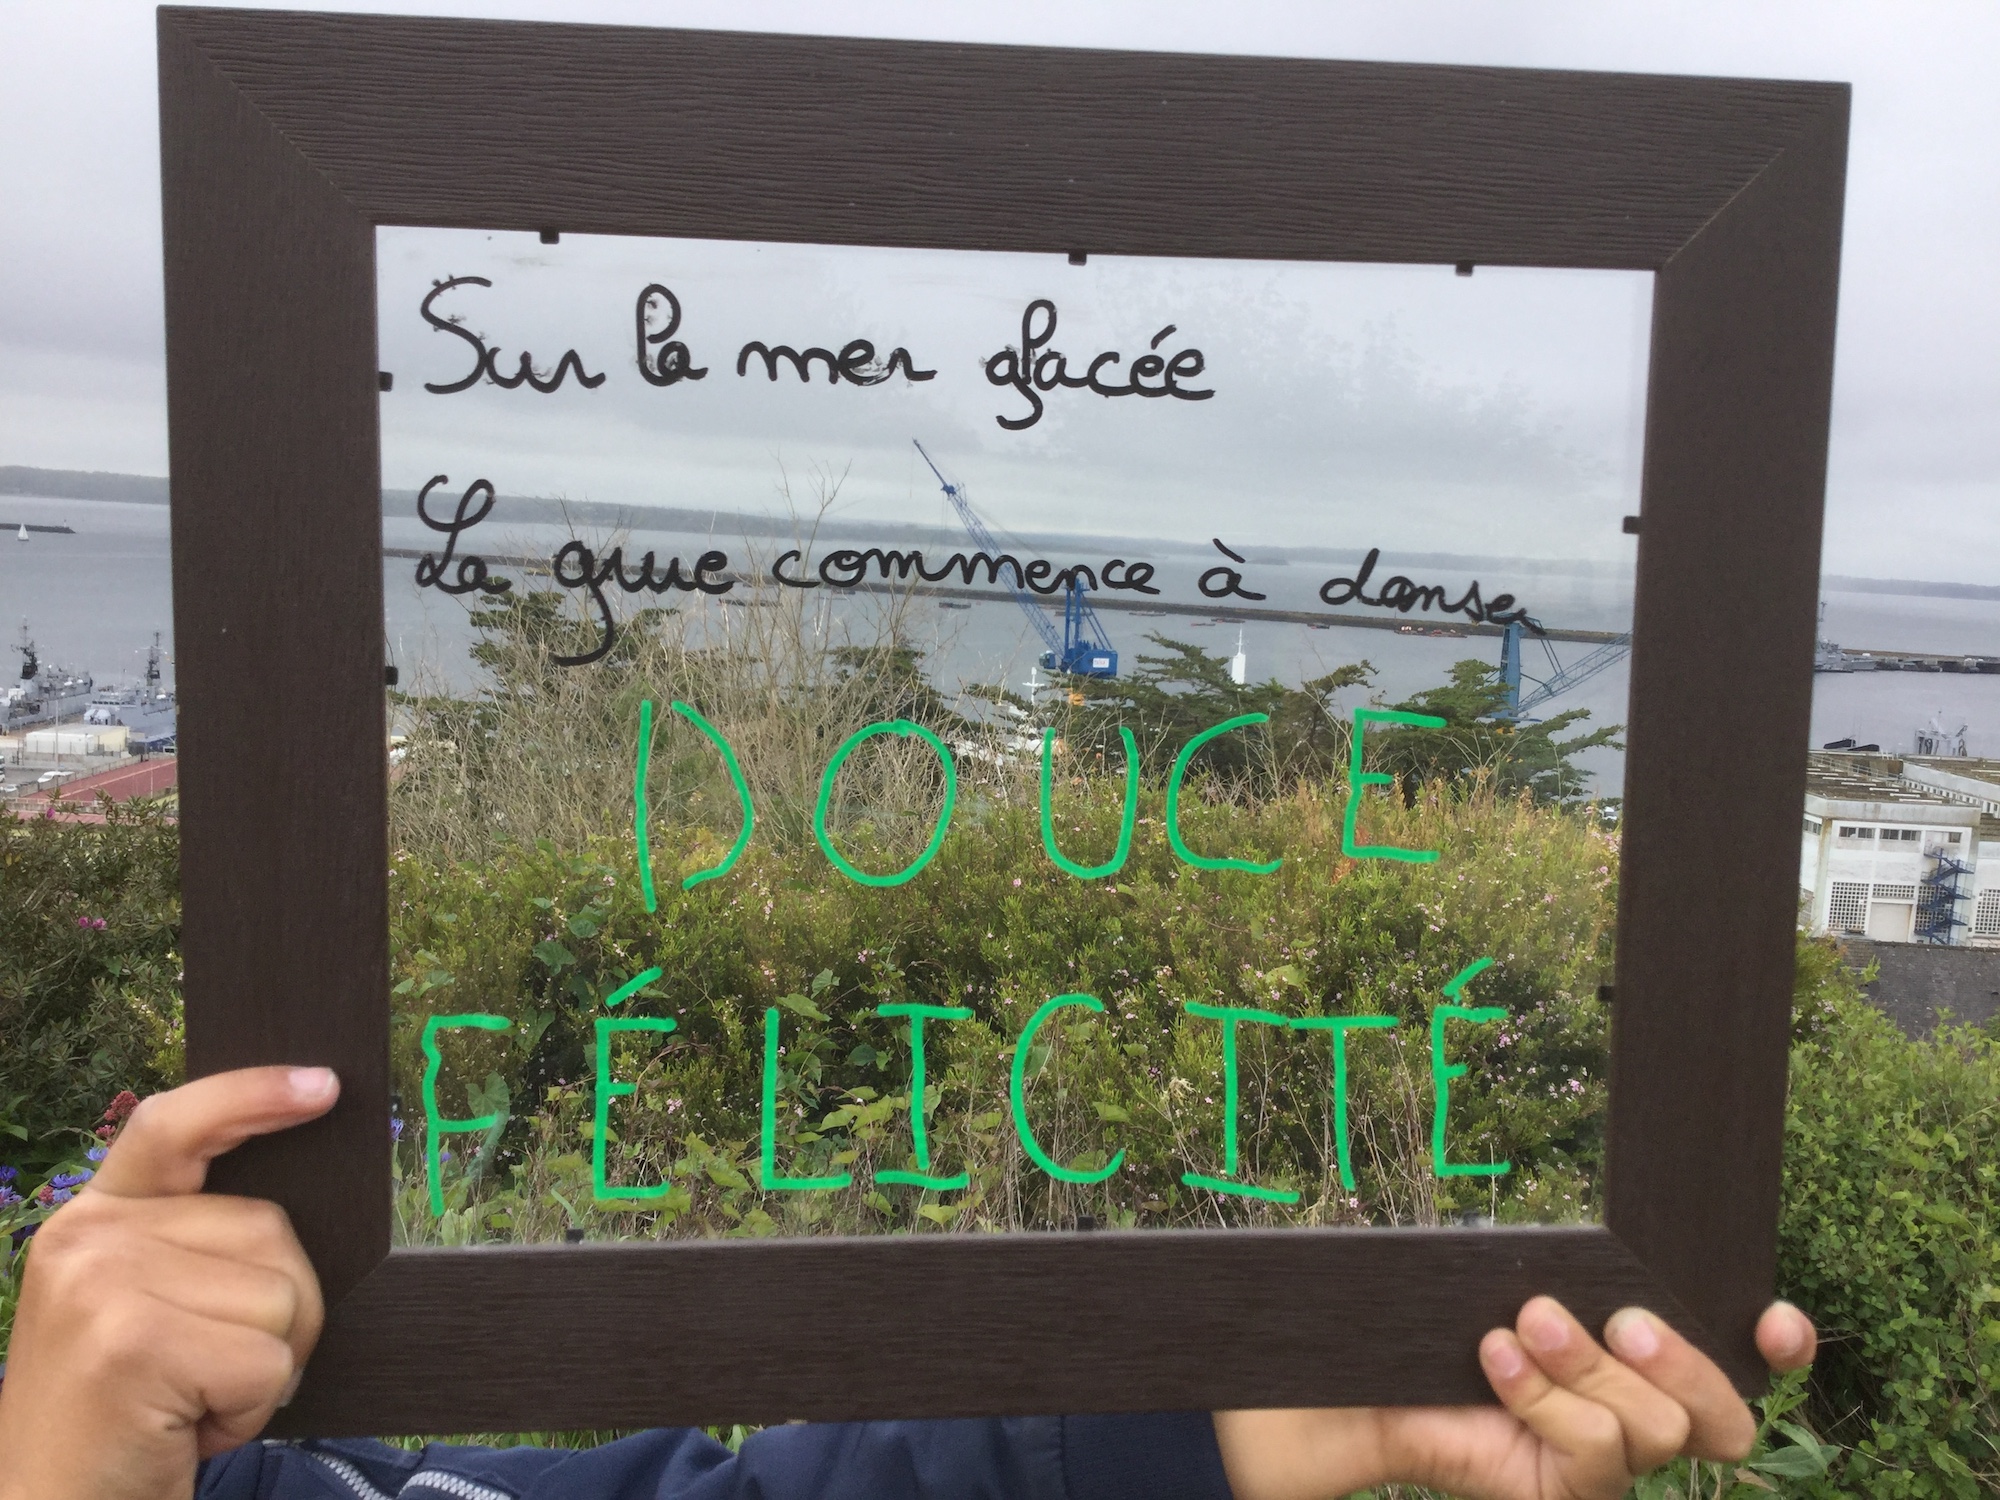 Sur la mer glacée
La grue commence à danser
DOUCE
FÉLICITÉ